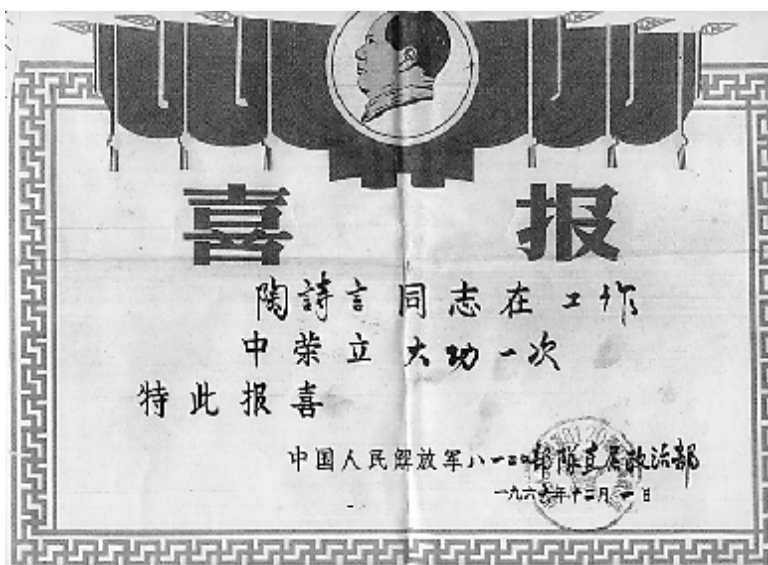 喜报
陶詩言同志在工作
中荣立大功一次
特此报喜
中国人民解放军八一二〇部隊直属政治部
一九六七年十二月一日